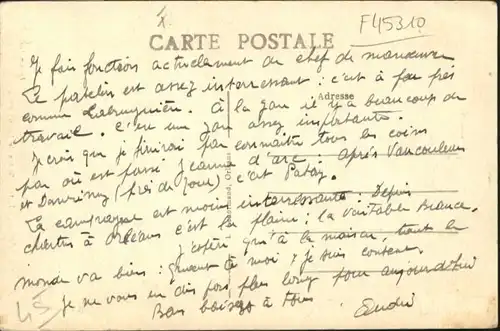 F45310
CARTE POSTALE
Adresse
Je fais fonction actuellement de chef de manœuvre
Le patelin est assez intéressant : c'est à peu près
comme Labruguière. à la gare il y a beaucoup de
travail. C'est une gare assez importante.
Je crois que je finirai par connaître tous les coins
par où est passé Jeanne d'arc : après Vaucouleurs
et (près de Toul) c'est Patay.
La campagne est moins intéressante. Depuis
chartres à Orléans c'est la plaine ; la véritable Beauce.
J'espère qu'à la maison, tout le
monde va bien : quant à moi je suis content.
Je ne vous en dis pas plus long pour aujourd'hui
Bons baisers à tous
André
45